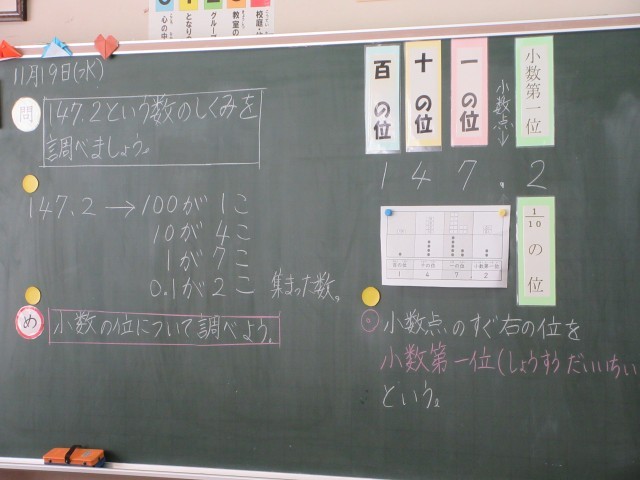 11月19日(水)
問
147.2という数のしくみを
調べましょう。
147.2→100が1こ
10が4こ
1が7こ
0.1が2こ 集まった数。
め
小数の位について調べよう。
百の位
十の位
一の位
小数点↓
小数第一位
147.2
1/10の位
百の位 十の位 一の位 小数第一位
1 4 7 2
小数点のすぐ右の位を
小数第一位(しょうすうだいいちい
という。